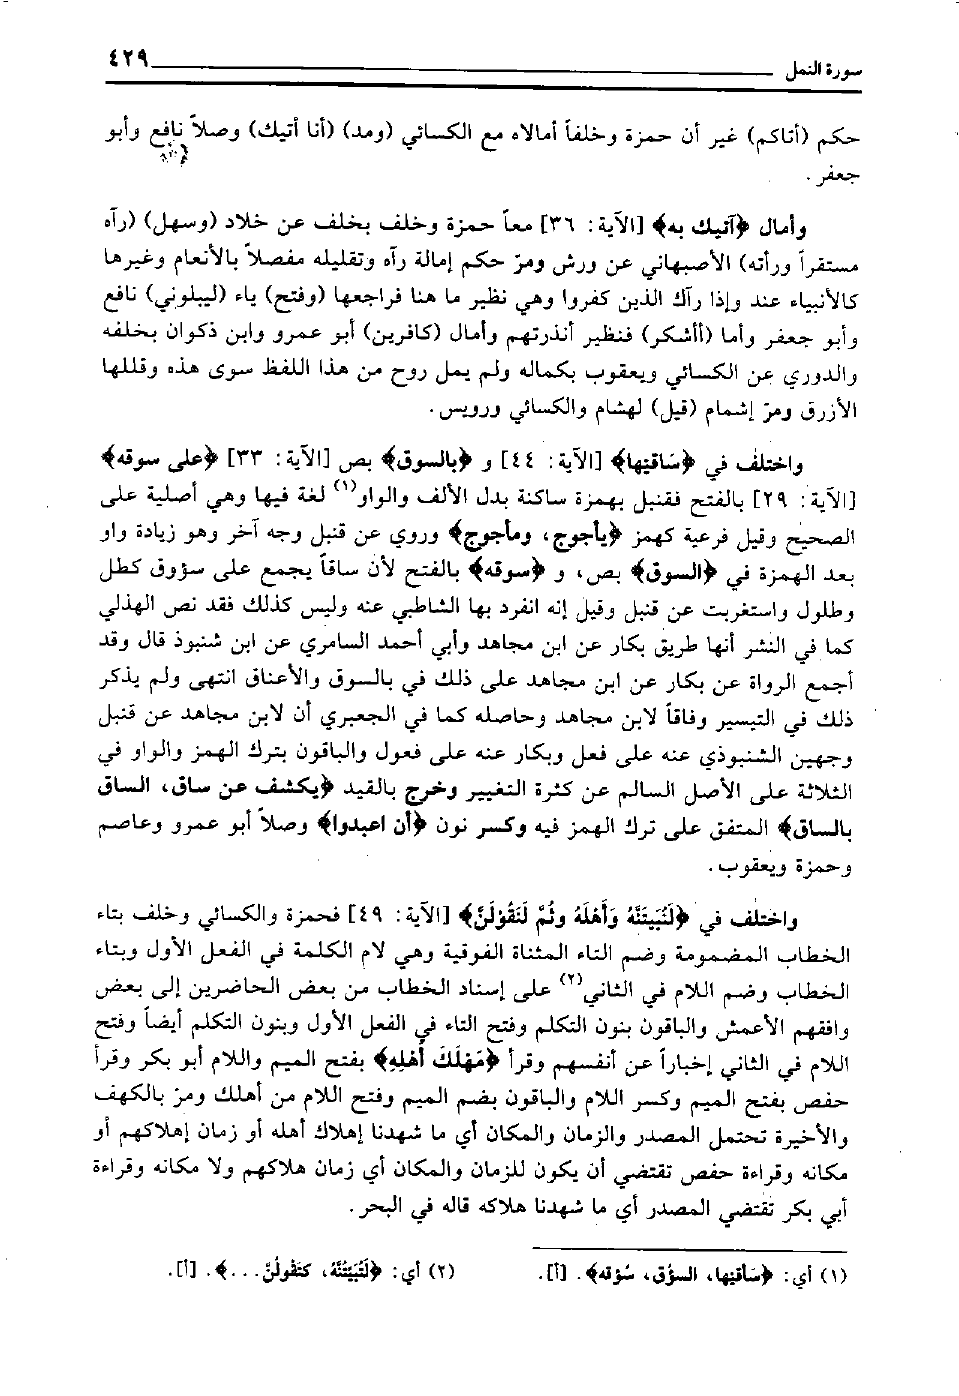 سورة النمل ٤٢٩
حكم (أتاكم) غير أن حمزة وخلفاً أمالاه مع الكسائي (ومد) (أنا أتيك) وصلاً نافع وأبو
جعفر.
وأمال ﴿آتيك به﴾ [الآية: ٣٦] معاً حمزة وخلف بخلف عن خلاد (وسهل) (رآه
مستقراً ورأته) الأصبهاني عن ورش ومرّ حكم إمالة رآه وتقليله مفصلاً بالأنعام وغيرها
كالأنبياء عند وإذا رآك الذين كفروا وهي نظير ما هنا فراجعها (وفتح) ياء (ليبلوني) نافع
وأبو جعفر وأما (أأشكر) فنظير أنذرتهم وأمال (كافرين) أبو عمرو وابن ذكوان بخلفه
والدوري عن الكسائي ويعقوب بكماله ولم يمل روح من هذا اللفظ سوى هذه وقللها
الأزرق ومرّ إشمام (قيل) لهشام والكسائي ورويس.
واختلف في ﴿سَاقيْها﴾ [الآية: ٤٤] و ﴿بالسوق﴾ بص [الآية: ٣٣] ﴿على سوقه﴾
[الآية: ٢٩] بالفتح فقنبل بهمزة ساكنة بدل الألف والواو(١) لغة فيها وهي أصلية على
الصحيح وقيل فرعية كهمز ﴿يأجوج، ومأجوج﴾ وروي عن قنبل وجه آخر وهو زيادة واو
بعد الهمزة في ﴿السوق﴾ بص، و ﴿سوقه﴾ بالفتح لأن ساقاً يجمع على سؤوق كطل
وطلول واستغربت عن قنبل وقيل إنه انفرد بها الشاطبي عنه وليس كذلك فقد نص الهذلي
كما في النشر أنها طريق بكار عن ابن مجاهد وأبي أحمد السامري عن ابن شنبوذ قال وقد
أجمع الرواة عن بكار عن ابن مجاهد على ذلك في بالسوق والأعناق انتهى ولم يذكر
ذلك في التيسير وفاقاً لابن مجاهد وحاصله كما في الجعبري أن لابن مجاهد عن قنبل
وجهين الشنبوذي عنه على فعل وبكار عنه على فعول والباقون بترك الهمز والواو في
الثلاثة على الأصل السالم عن كثرة التغيير وخرج بالقيد ﴿يكشف عن ساق، الساق
بالساق﴾ المتفق على ترك الهمز فيه وكسر نون ﴿أن اعبدوا﴾ وصلاً أبو عمرو وعاصم
وحمزة ويعقوب.
واختلف في ﴿لَنُبَيِّتَنَّهُ وَأَهْلَهُ وثُمَّ لَنَقُوْلَنَّ﴾ [الآية: ٤٩] فحمزة والكسائي وخلف بتاء
الخطاب المضمومة وضم التاء المثناة الفوقية وهي لام الكلمة في الفعل الأول وبتاء
الخطاب وضم اللام في الثاني(٢) على إسناد الخطاب من بعض الحاضرين إلى بعض
وافقهم الأعمش والباقون بنون التكلم وفتح التاء في الفعل الأول وبنون التكلم أيضاً وفتح
اللام في الثاني إخباراً عن أنفسهم وقرأ ﴿مَهْلَكَ أَهْلِهِ﴾ بفتح الميم واللام أبو بكر وقرأ
حفص بفتح الميم وكسر اللام والباقون بضم الميم وفتح اللام من أهلك ومرّ بالكهف
والأخيرة تحتمل المصدر والزمان والمكان أي ما شهدنا إهلاك أهله أو زمان إهلاكهم أو
مكانه وقراءة حفص تقتضي أن يكون للزمان والمكان أي زمان هلاكهم ولا مكانه وقراءة
أبي بكر تقتضي المصدر أي ما شهدنا هلاكه قاله في البحر.
(١) أي: ﴿سَأقيْها، السؤق، سُؤقه﴾. [أ]. (٢) أي: ﴿لَتُبَيِّتُنَّهُ، كتَقُولُنَّ...﴾. [أ].